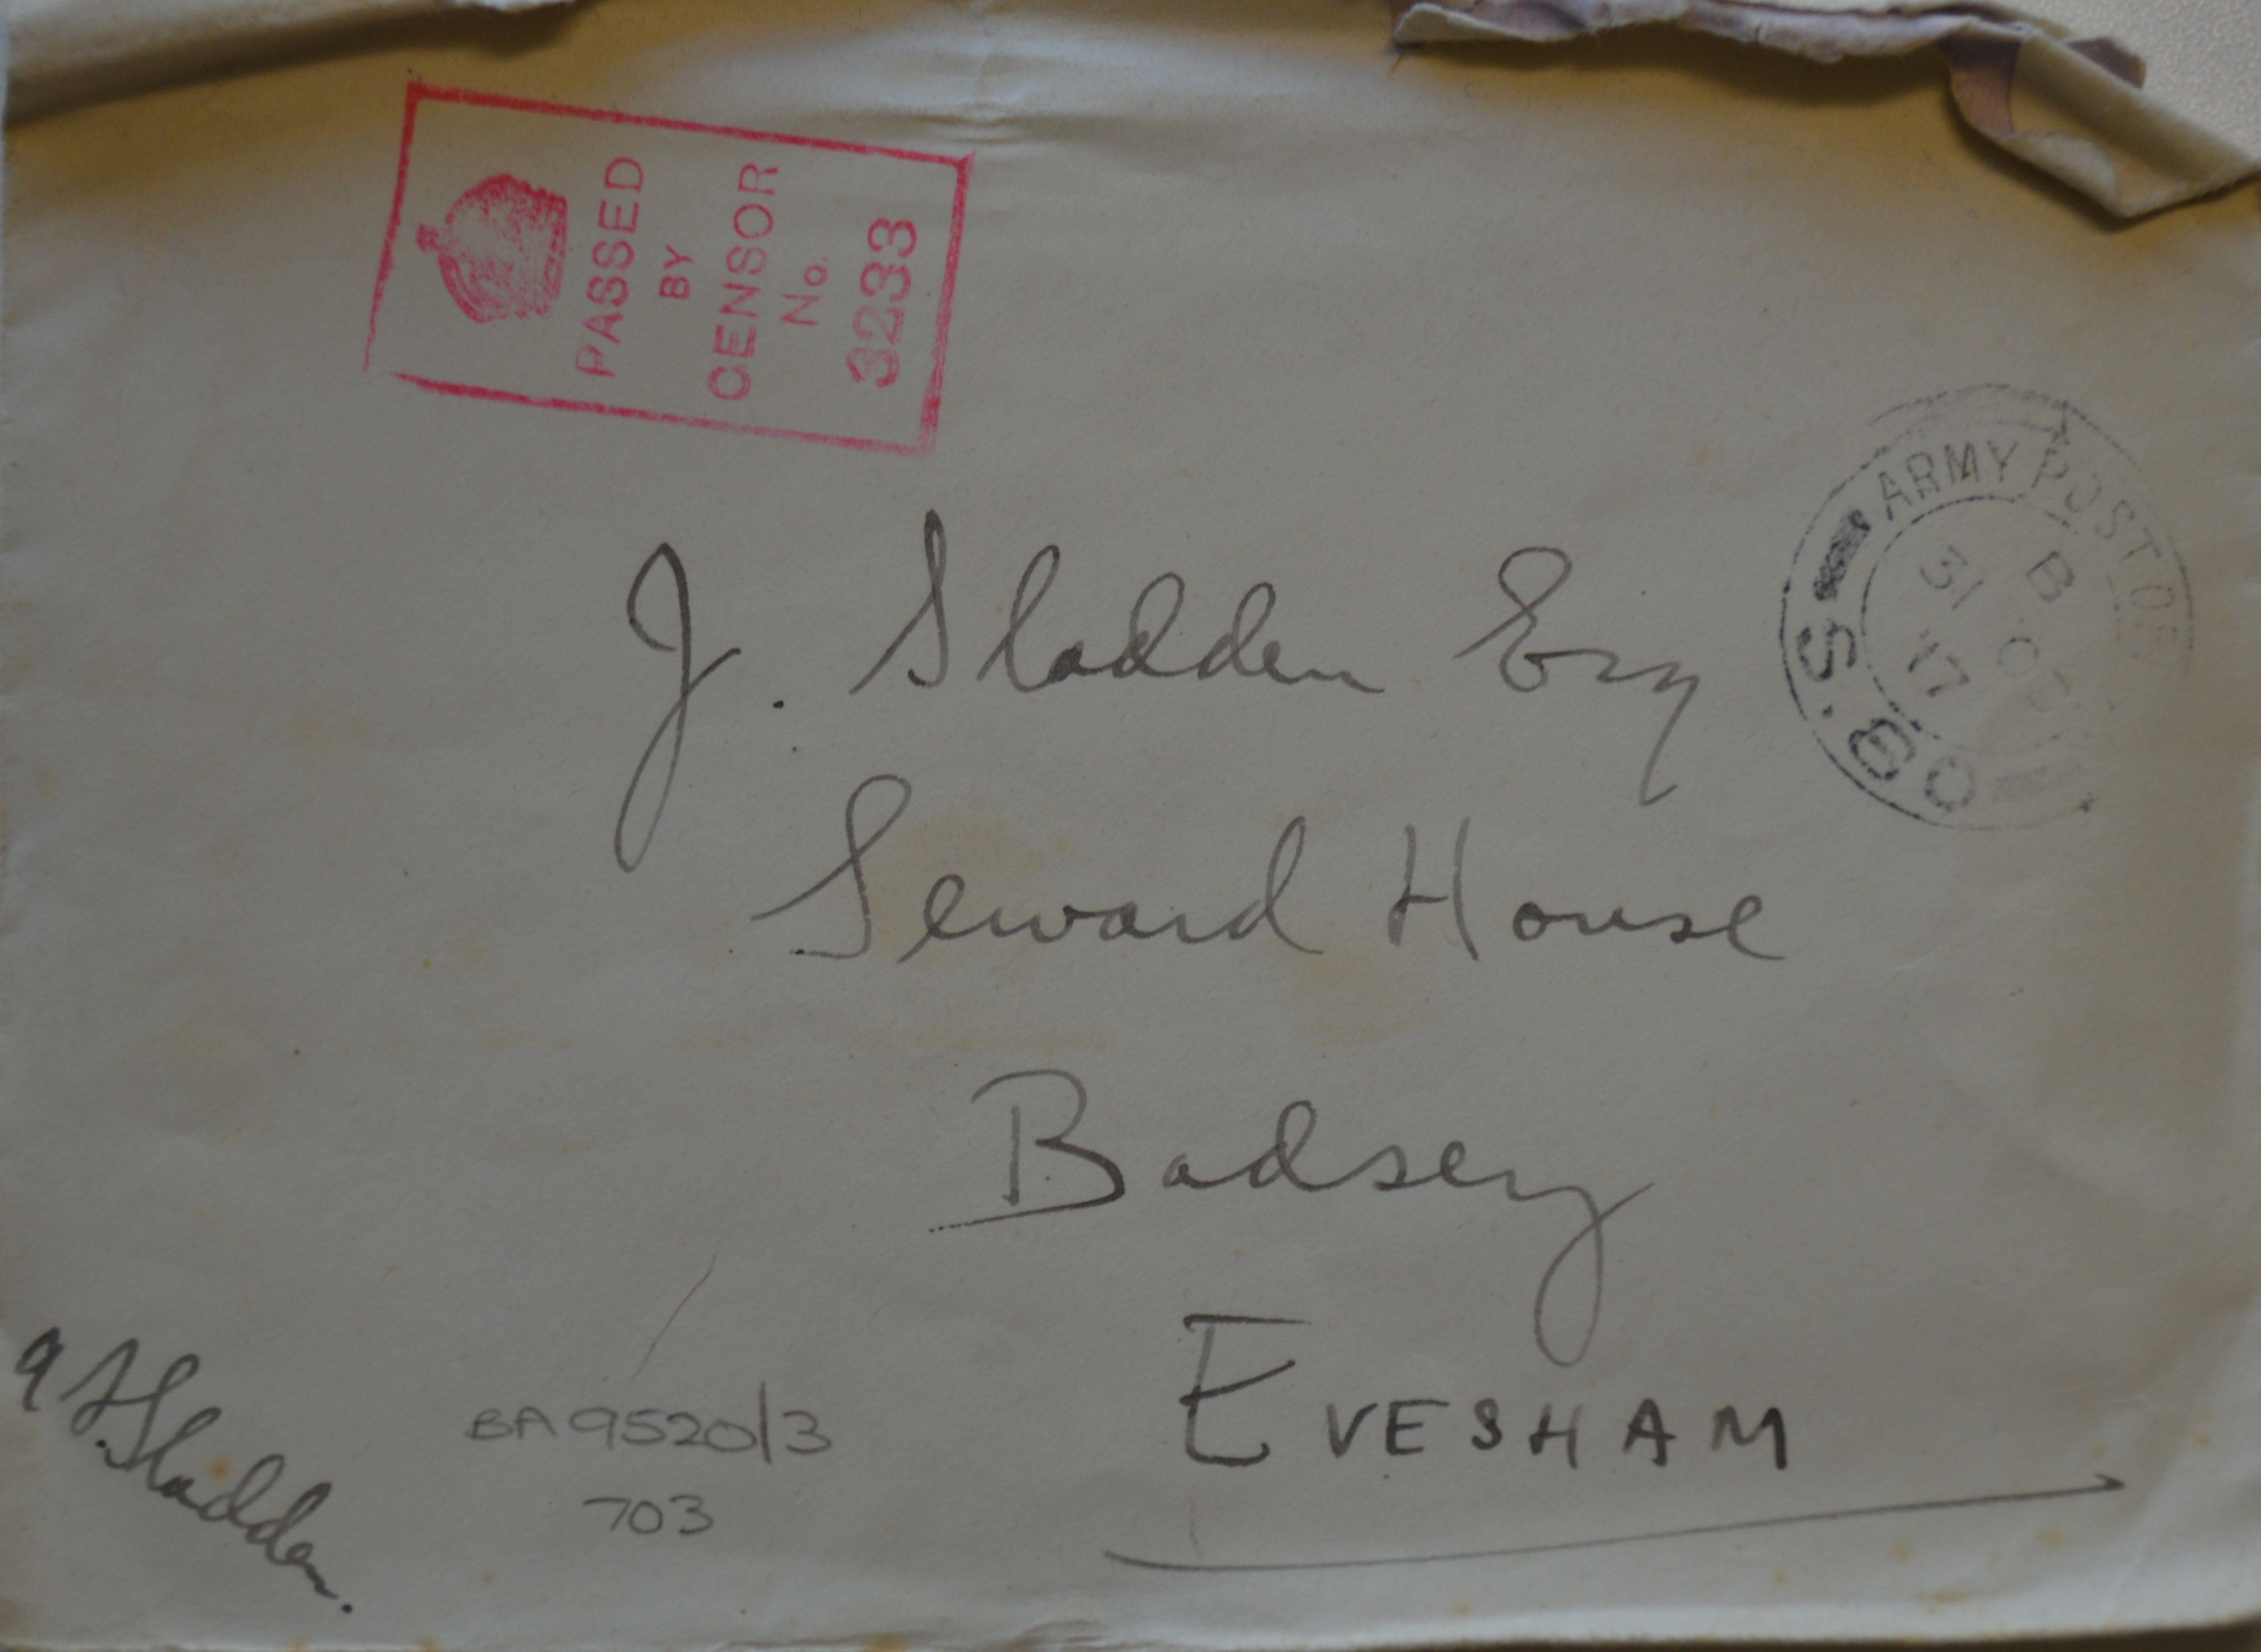 PASSED
BY
CENSOR
No.
3233
ARMY POST OF
B
31 OC
17
S.80
J. Sladden Esq
Seward House
Badsey
EVESHAM
Sladden.
BA9520/3
703